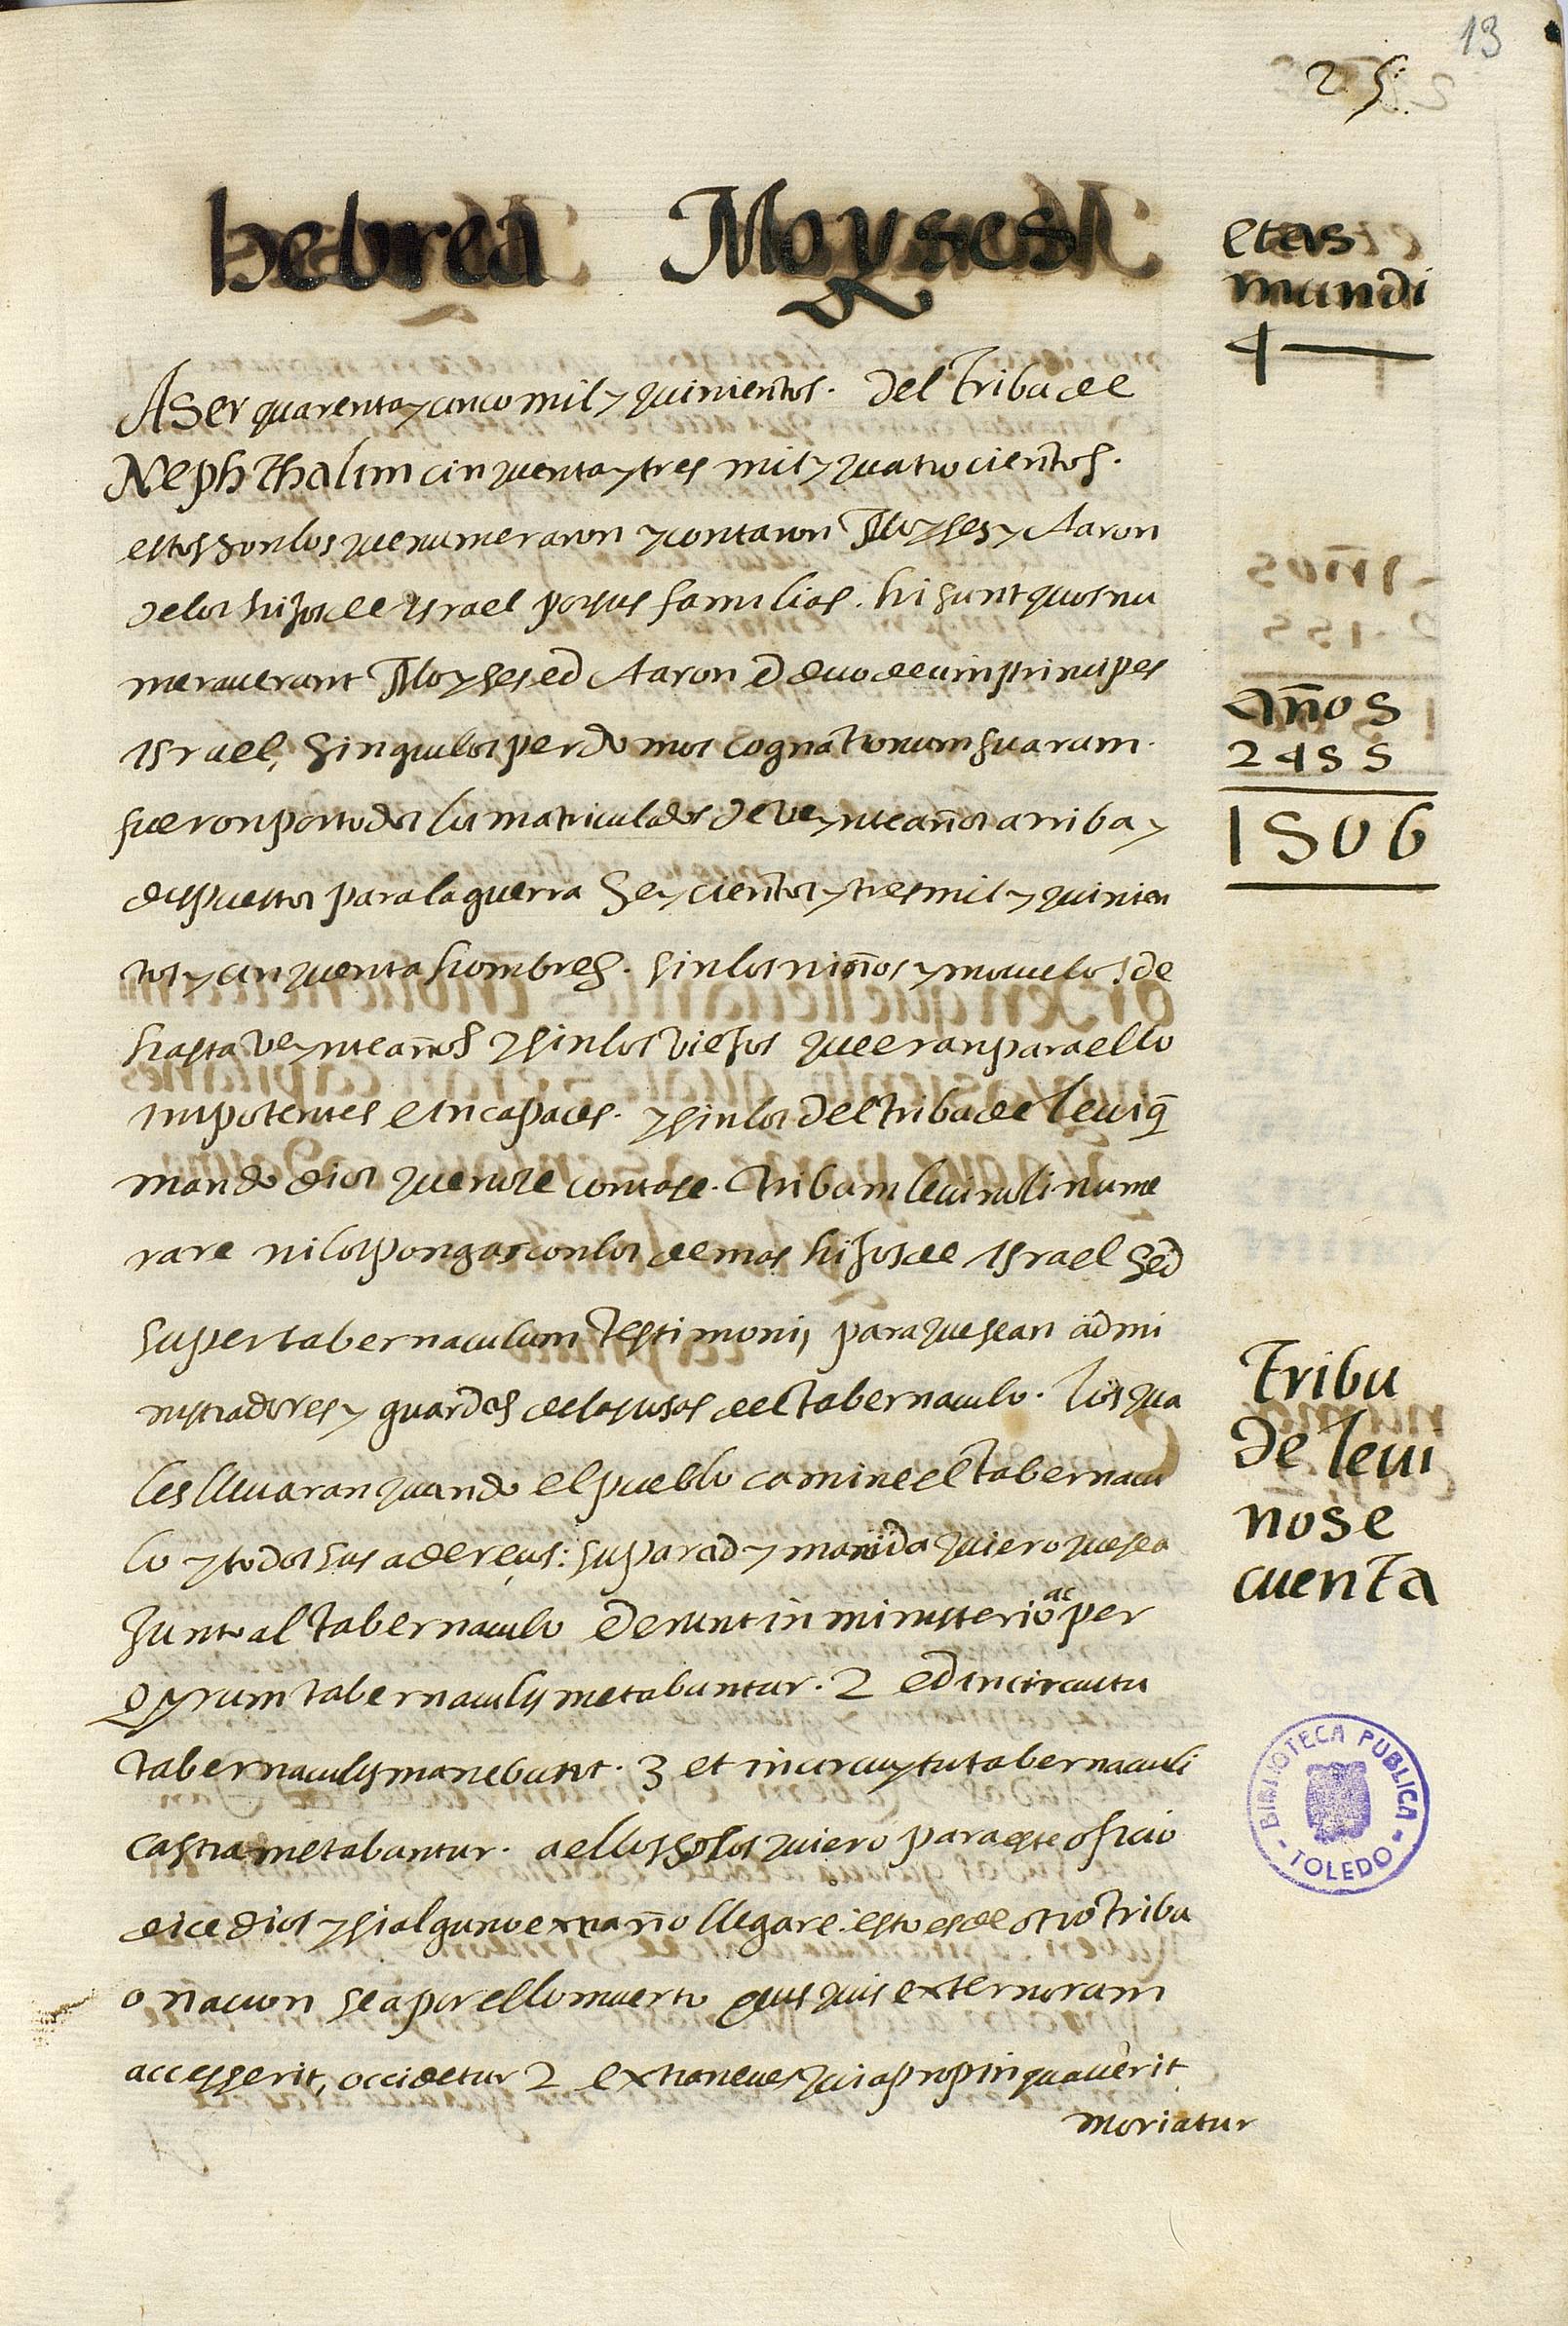 13
25.
hebrea Moyses
etas
mundi
4
Aser quarenta y cinco mil y quinientos. Del tribu de
Nephthalim cinquenta y tres mil y quatrocientos.
estos son los que numeraron y contaron Moyses y Aaron
de los hijos de Israel por sus familias. hi sunt quos nu
meraverant Moyses ed Aaron & duodecim principes
Israel, singulos per domos cognationum suarum.
fueron por todos los matriculados de veynte años arriba y
dispuestos para la guerra seycientos y tres mil y quinien
tos y cinquenta hombres. sin los niños y moçuelos de
hasta veynte años y sin los viejos que eran para ello
impotentes e incapaces. y sin los del tribu de Levi q̃
mando dios que no se contase. tribum levi noli nume
rare ni los pongas con los demas hijos de Israel sed
super tabernaculum testimonij para que sean admi
nistradores y guardas de las cosas del tabernaculo. los qua
les llevaran quando el pueblo camine el tabernacu
lo y todos sus adereços: su parad y manida quiero que sea
junto al tabernaculo & erunt in ministerio ac per
gyrum tabernaculy metabuntur. 2 ed in circuitu
tabernaculy manebunt. 3 et in circuytu tabernaculi
castra metabantur. a ellos solos quiero para este oficio
dice dios y si alguno extraño llegare. esto es de otro tribu
o nacion sea por ello muerto quis quis externoram
accesserit, occidetur 2 extraneus qui apropinquaverit
moriatur
años
2455
1506
Tribu
de levi
no se
cuenta
BIBLIOTECA PUBLICA
- TOLEDO -